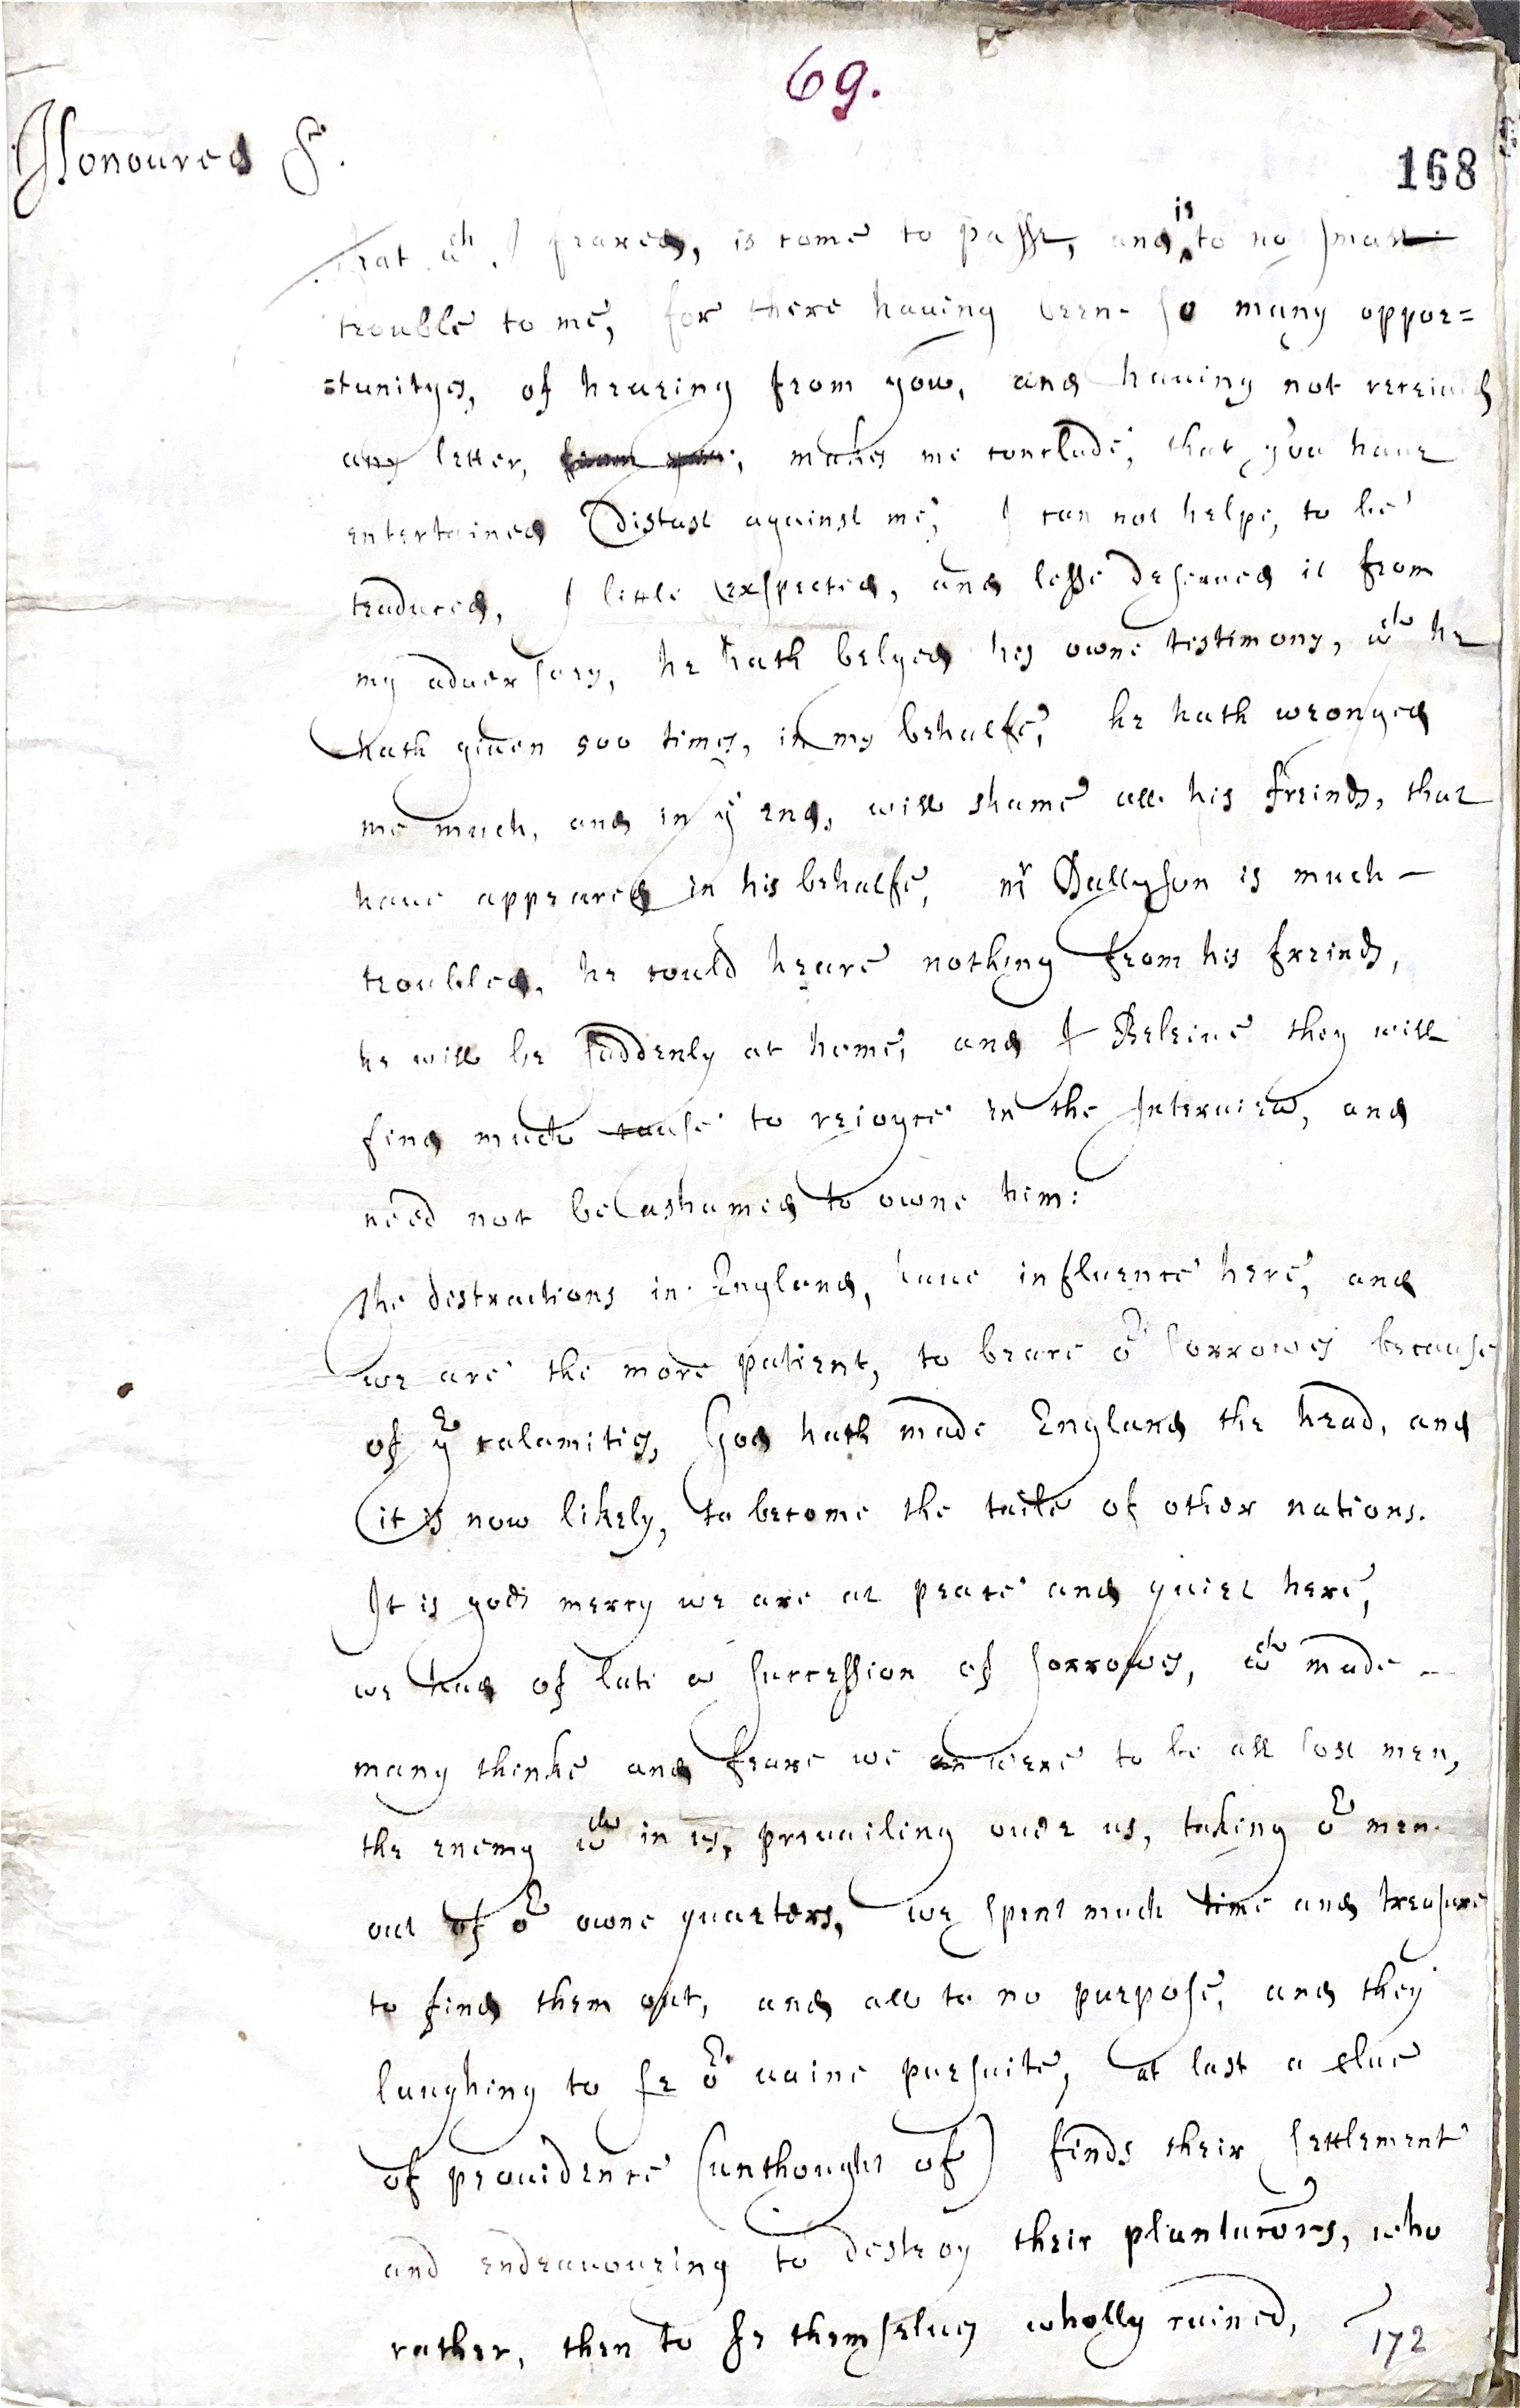 69.
168
Honoured Sr.
That wch. I feared, is come to passe, and is to no small
trouble to me, for there having been so many oppor=
=tunityes, of hearing from you, and having not received
any letter, from you, makes me conclude, that you have
entertained distast against me, I can not helpe, to be
traduced, I little exspected, and lesse deserved it from
my adversary, he hath belyed his owne testimony, wch he
hath given 500 times, in my behalfe, he hath wronged
me much, and in ye end, will shame all his freinds, that
have appeared in his behalfe, mr Dallyson is much -
troubled, he could heare nothing from his freinds,
he will be suddenly at home, and I Beleive they will
find much cause to rejoyce in the Interview, and
need not be ashamed to owne him:
The distractions in England, have influence here, and
we are the more patient, to beare or sorrowes because
of yr calamities, God hath made England the head, and
it is now likely, to become the taile of other nations.
It is gods mercy we are at peace and quiet here,
we had of late a succession of sorrowes, wch made -
many thinke and feare we were to be all lost men,
the enemy wch in us, prevailing over us, taking or men
out of or owne quarters, we spent much time and treasure
to find them out, and all to no purpose, and they
laughing to se or vaine pursuite, at last a clue
of providence (unthought of) finds their settlement
and endeavouring to destroy their plantacons, who
rather, then to se themselves wholly ruined,
172